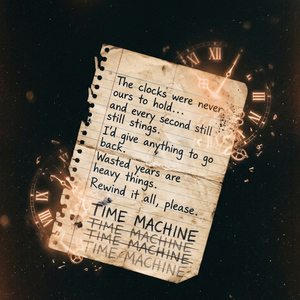 The clocks were never
ours to hold...
and every second still
still stings.
I'd give anything to go
back.
Wasted years are
heavy things.
Rewind it all, please.
TIME MACHINE
TIME MACHINE
TIME MACHINE
TIME MACHINE